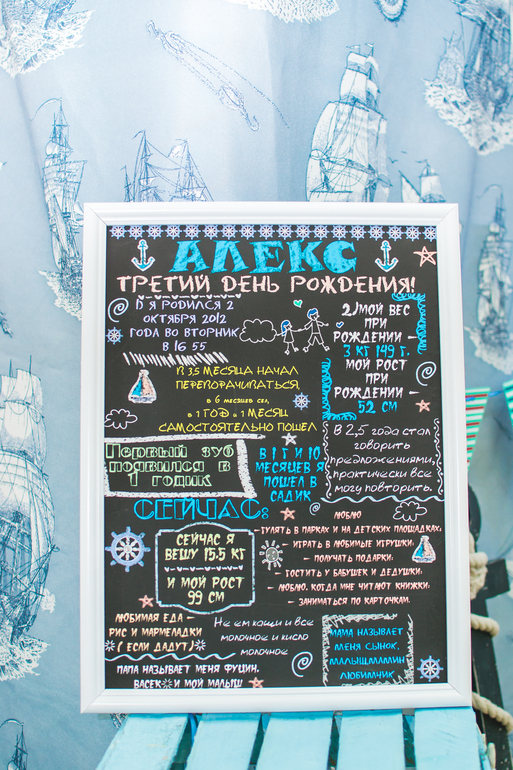 АЛЕКС
ТРЕТИЙ ДЕНЬ РОЖДЕНИЯ!
1) Я РОДИЛСЯ 2
ОКТЯБРЯ 2012
ГОДА ВО ВТОРНИК
В 16 55
2) МОЙ ВЕС
ПРИ
РОЖДЕНИИ –
3 КГ 149 Г.
МОЙ РОСТ
ПРИ
РОЖДЕНИИ –
52 СМ
В 3,5 МЕСЯЦА НАЧАЛ
ПЕРЕВОРАЧИВАТЬСЯ,
в 6 месяцев сел,
в 1 ГОД и 1 МЕСЯЦ
САМОСТОЯТЕЛЬНО ПОШЕЛ
Первый зуб
появился в
1 годик
В 1 Г И 10
МЕСЯЦЕВ Я
ПОШЕЛ В
САДИК
В 2,5 года стал
говорить
предложениями,
практически все
могу повторить.
СЕЙЧАС:
СЕЙЧАС Я
ВЕШУ 15.5 КГ
И МОЙ РОСТ
99 СМ
ЛЮБЛЮ
– ГУЛЯТЬ В ПАРКАХ И НА ДЕТСКИХ ПЛОЩАДКАХ.
– ИГРАТЬ В ЛЮБИМЫЕ ИГРУШКИ.
– ПОЛУЧАТЬ ПОДАРКИ.
– ГОСТИТЬ У БАБУШЕК И ДЕДУШКИ.
– ЛЮБЛЮ, КОГДА МНЕ ЧИТАЮТ КНИЖКИ.
– ЗАНИМАТЬСЯ ПО КАРТОЧКАМ.
ЛЮБИМАЯ ЕДА –
РИС И МАРМЕЛАДКИ
( ЕСЛИ ДАДУТ)
Не ем каши и все
молочное и кисло
молочное
МАМА НАЗЫВАЕТ
МЕНЯ СЫНОК,
МАЛЫШ,МАМИН
ЛЮБИМЧИК
ПАПА НАЗЫВАЕТ МЕНЯ ФУЦИН,
ВАСЕК И МОЙ МАЛЫШ